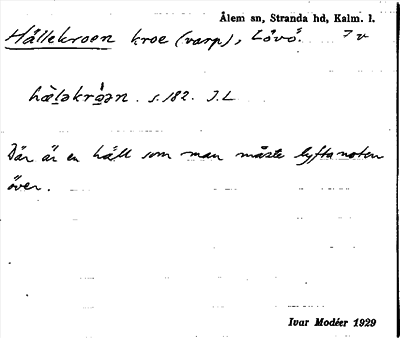 Ålem sn, Stranda hd, Kalm. l.
Hällekroen kroe (varp), Lövö. I v
hä̀lǝkròǝn . s. 182. I. L
Där är en häll som man måste lyfta noten
över.
Ivar Modéer 1929